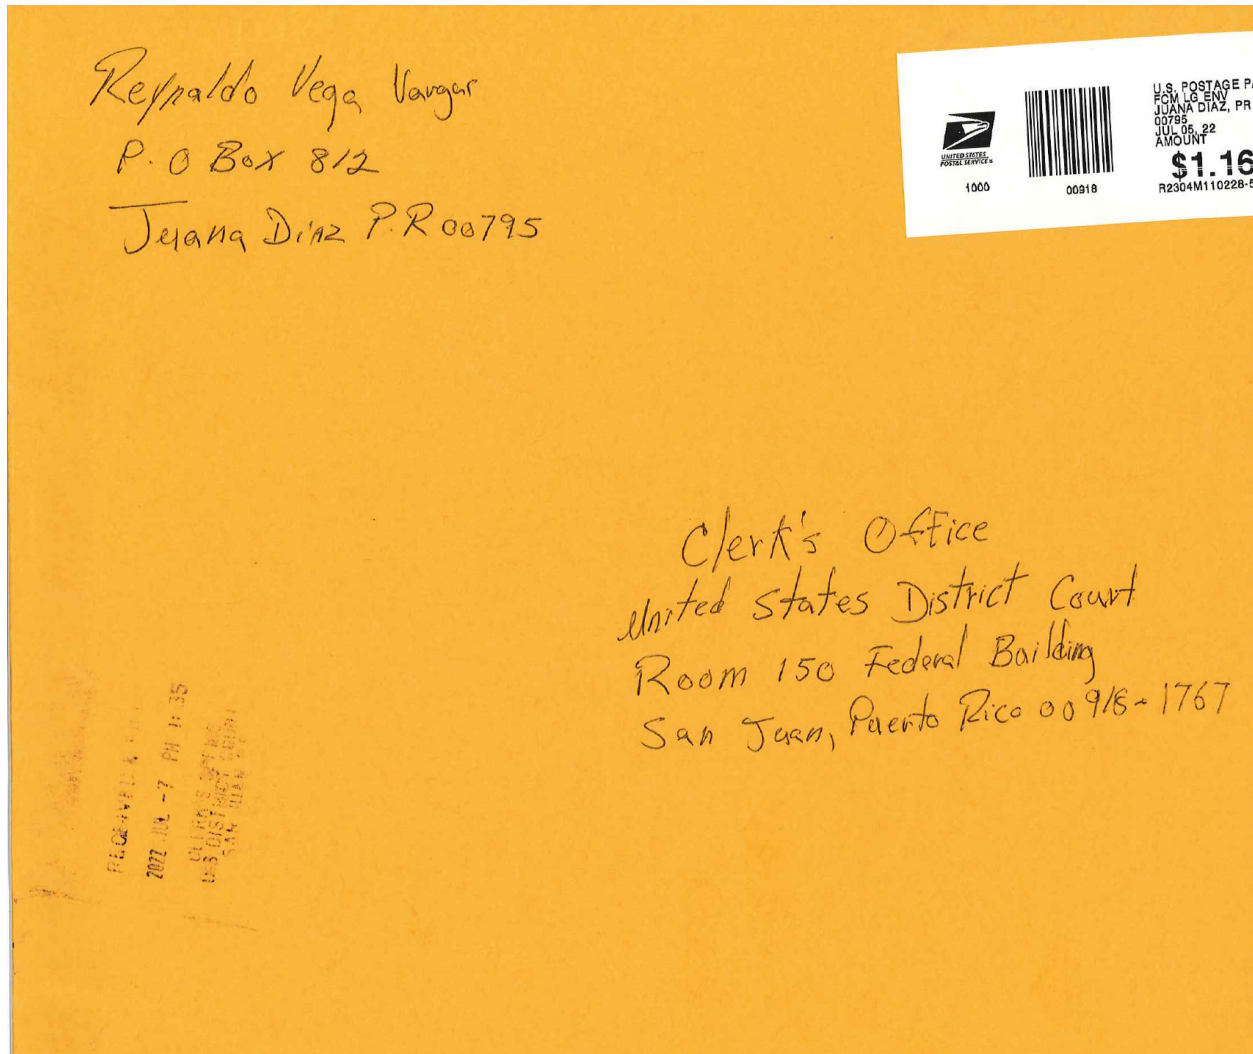 Reynaldo Vega Vargas
P.O Box 812
Juana Diaz P.R 00795
UNITED STATES
POSTAL SERVICE®
1000
00918
U.S. POSTAGE PA
FCM LG ENV
JUANA DIAZ, PR
00795
JUL 05, 22
AMOUNT
$1.16
R2304M110228-5
Clerk's Office
United States District Court
Room 150 Federal Building
San Juan, Puerto Rico 00918-1767
RECEIVED &
2022 JUL -7 PM 1:35
CLERK'S OFFICE
U.S DISTRICT COURT
SAN JUAN PR